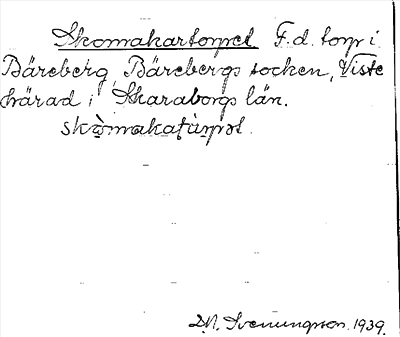 Skomakartorpet F.d. torp i
Bäreberg, Bärebergs socken, Viste
härad i Skaraborgs län.
skò̤makatùr̥pət.
D.N. Svenungsson. 1939.